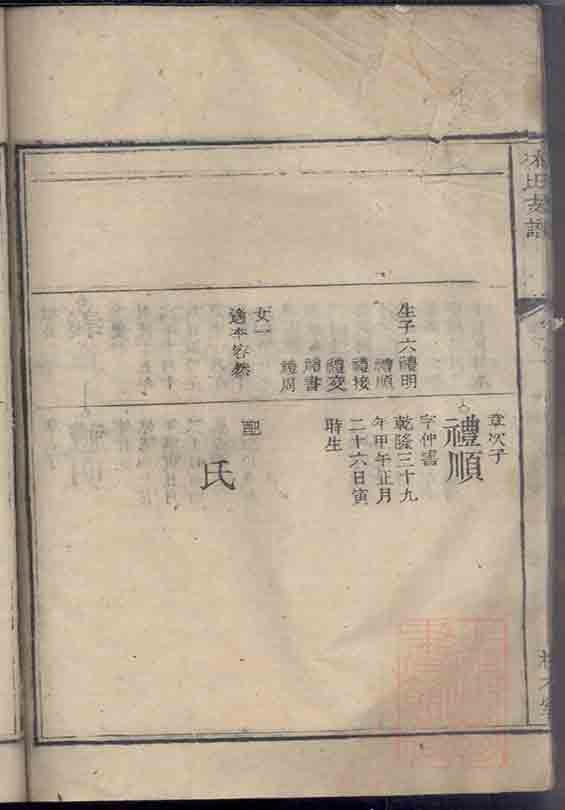 林氏支譜
生子六禮明
禮順
禮接
禮交
禮書
禮周
女一
適李容叅
章次子
禮順
字仲書
乾隆三十九
年甲午正月
二十六日寅
時生
配
氏